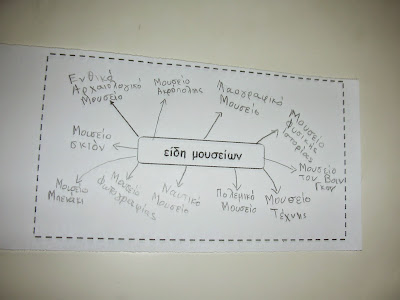 Ενθικό
Αρχαιολογικό
Μουσείο
Μουσείο
Ακρόπολης
Λαογραφικό
Μουσείο
Μουσείο
Φυσικής
Ιστορίας
Μουσείο
σκιόν
είδη μουσείων
Μουσείο
του Βαν
Γκογκ
Μουσείο
Μπενάκι
Μουσείο
Φωτογραφίας
Ναυτικό
Μουσείο
Πολεμικό
Μουσείο
Μουσείο
Τέχνης